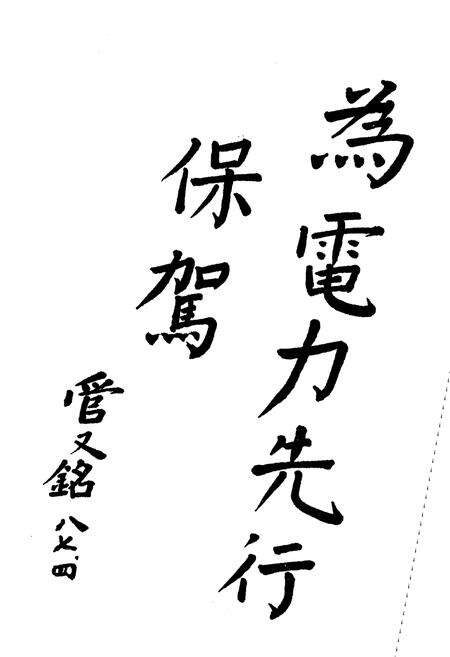 為電力先行
保駕
管又銘 八七.四